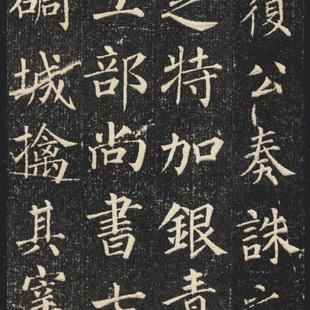 復公奏誅
之特加銀青
工部尚書
城擒其